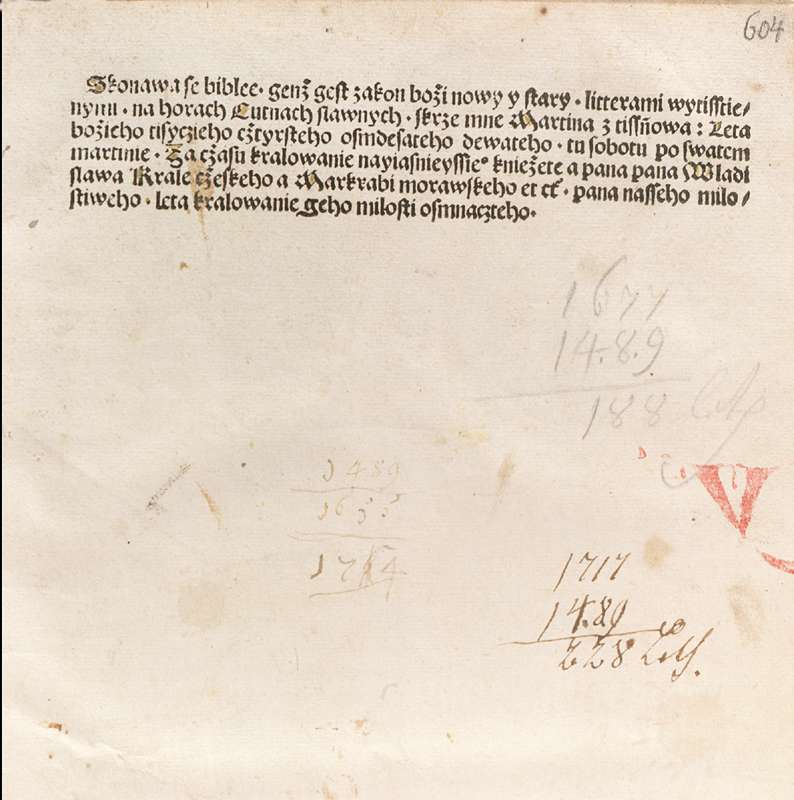 604
Skonawa se biblee · genž gest zakon boži nowy y stary · litterami wytisstie/
nymi · na horach Cutnach slawnych · skrze mne Martina z tissňowa : Leta
božieho tisyczieho cžtyrsteho osmdesateho dewateho · tu sobotu po swatem
martinie · Za cžasu kralowanie nayiasnieyssieo kniežete a pana pana Wladi
slawa Krale cžeskeho a Markrabi morawskeho et cť · pana nasseho milo/
stiweho · leta kralowanie geho milosti osmnaczteho·
1677
14.8.9
188 let
1489
1655
1717
14.89
228 Let.